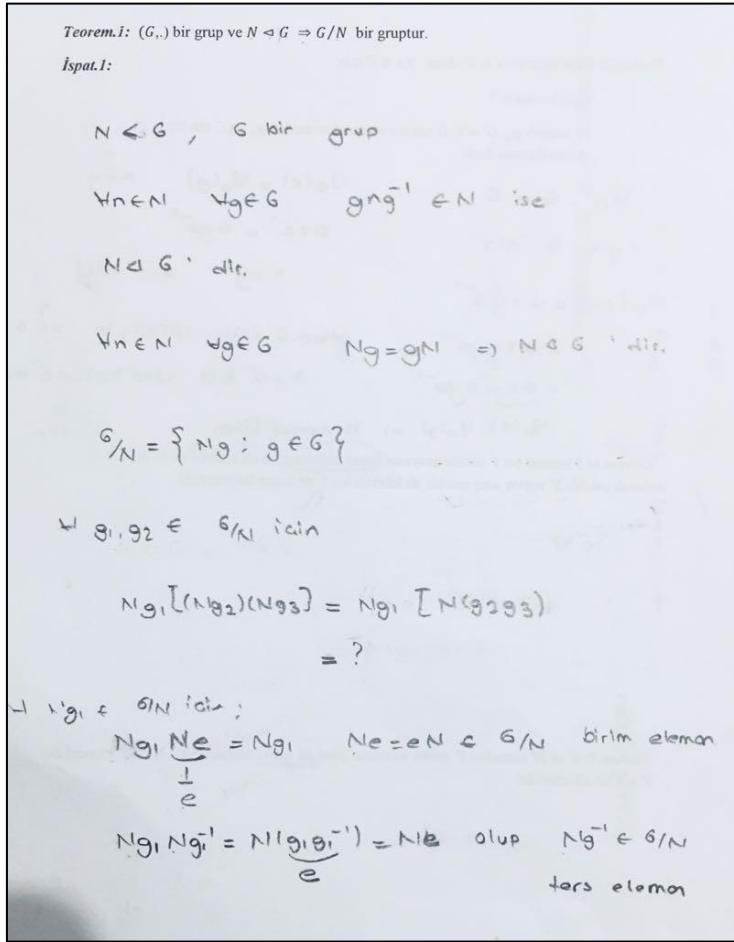 Teorem.1: (G,.) bir grup ve N ⊲ G ⇒ G/N bir gruptur.
İspat.1:
N ≤ G, G bir grup
∀n∈N ∀g∈G gng⁻¹ ∈ N ise
N⊲ G ' dir.
∀n∈N ∀g∈G Ng=gN => N⊲G 'dir.
G/N = { Ng : g∈G}
∀ g₁,g₂ ∈ G/N icin
Ng₁[(Ng₂)(Ng₃] = Ng₁ [N(g₂g₃)
= ?
∀ Ng₁ ∈ G/N icin;
Ng₁ Ne = Ng₁ Ne=eN ∈ G/N birim eleman
e
Ng₁ Ng₁⁻¹ = N(g₁g₁⁻¹) = Ne olup Ng⁻¹ ∈ G/N
e
ters eleman